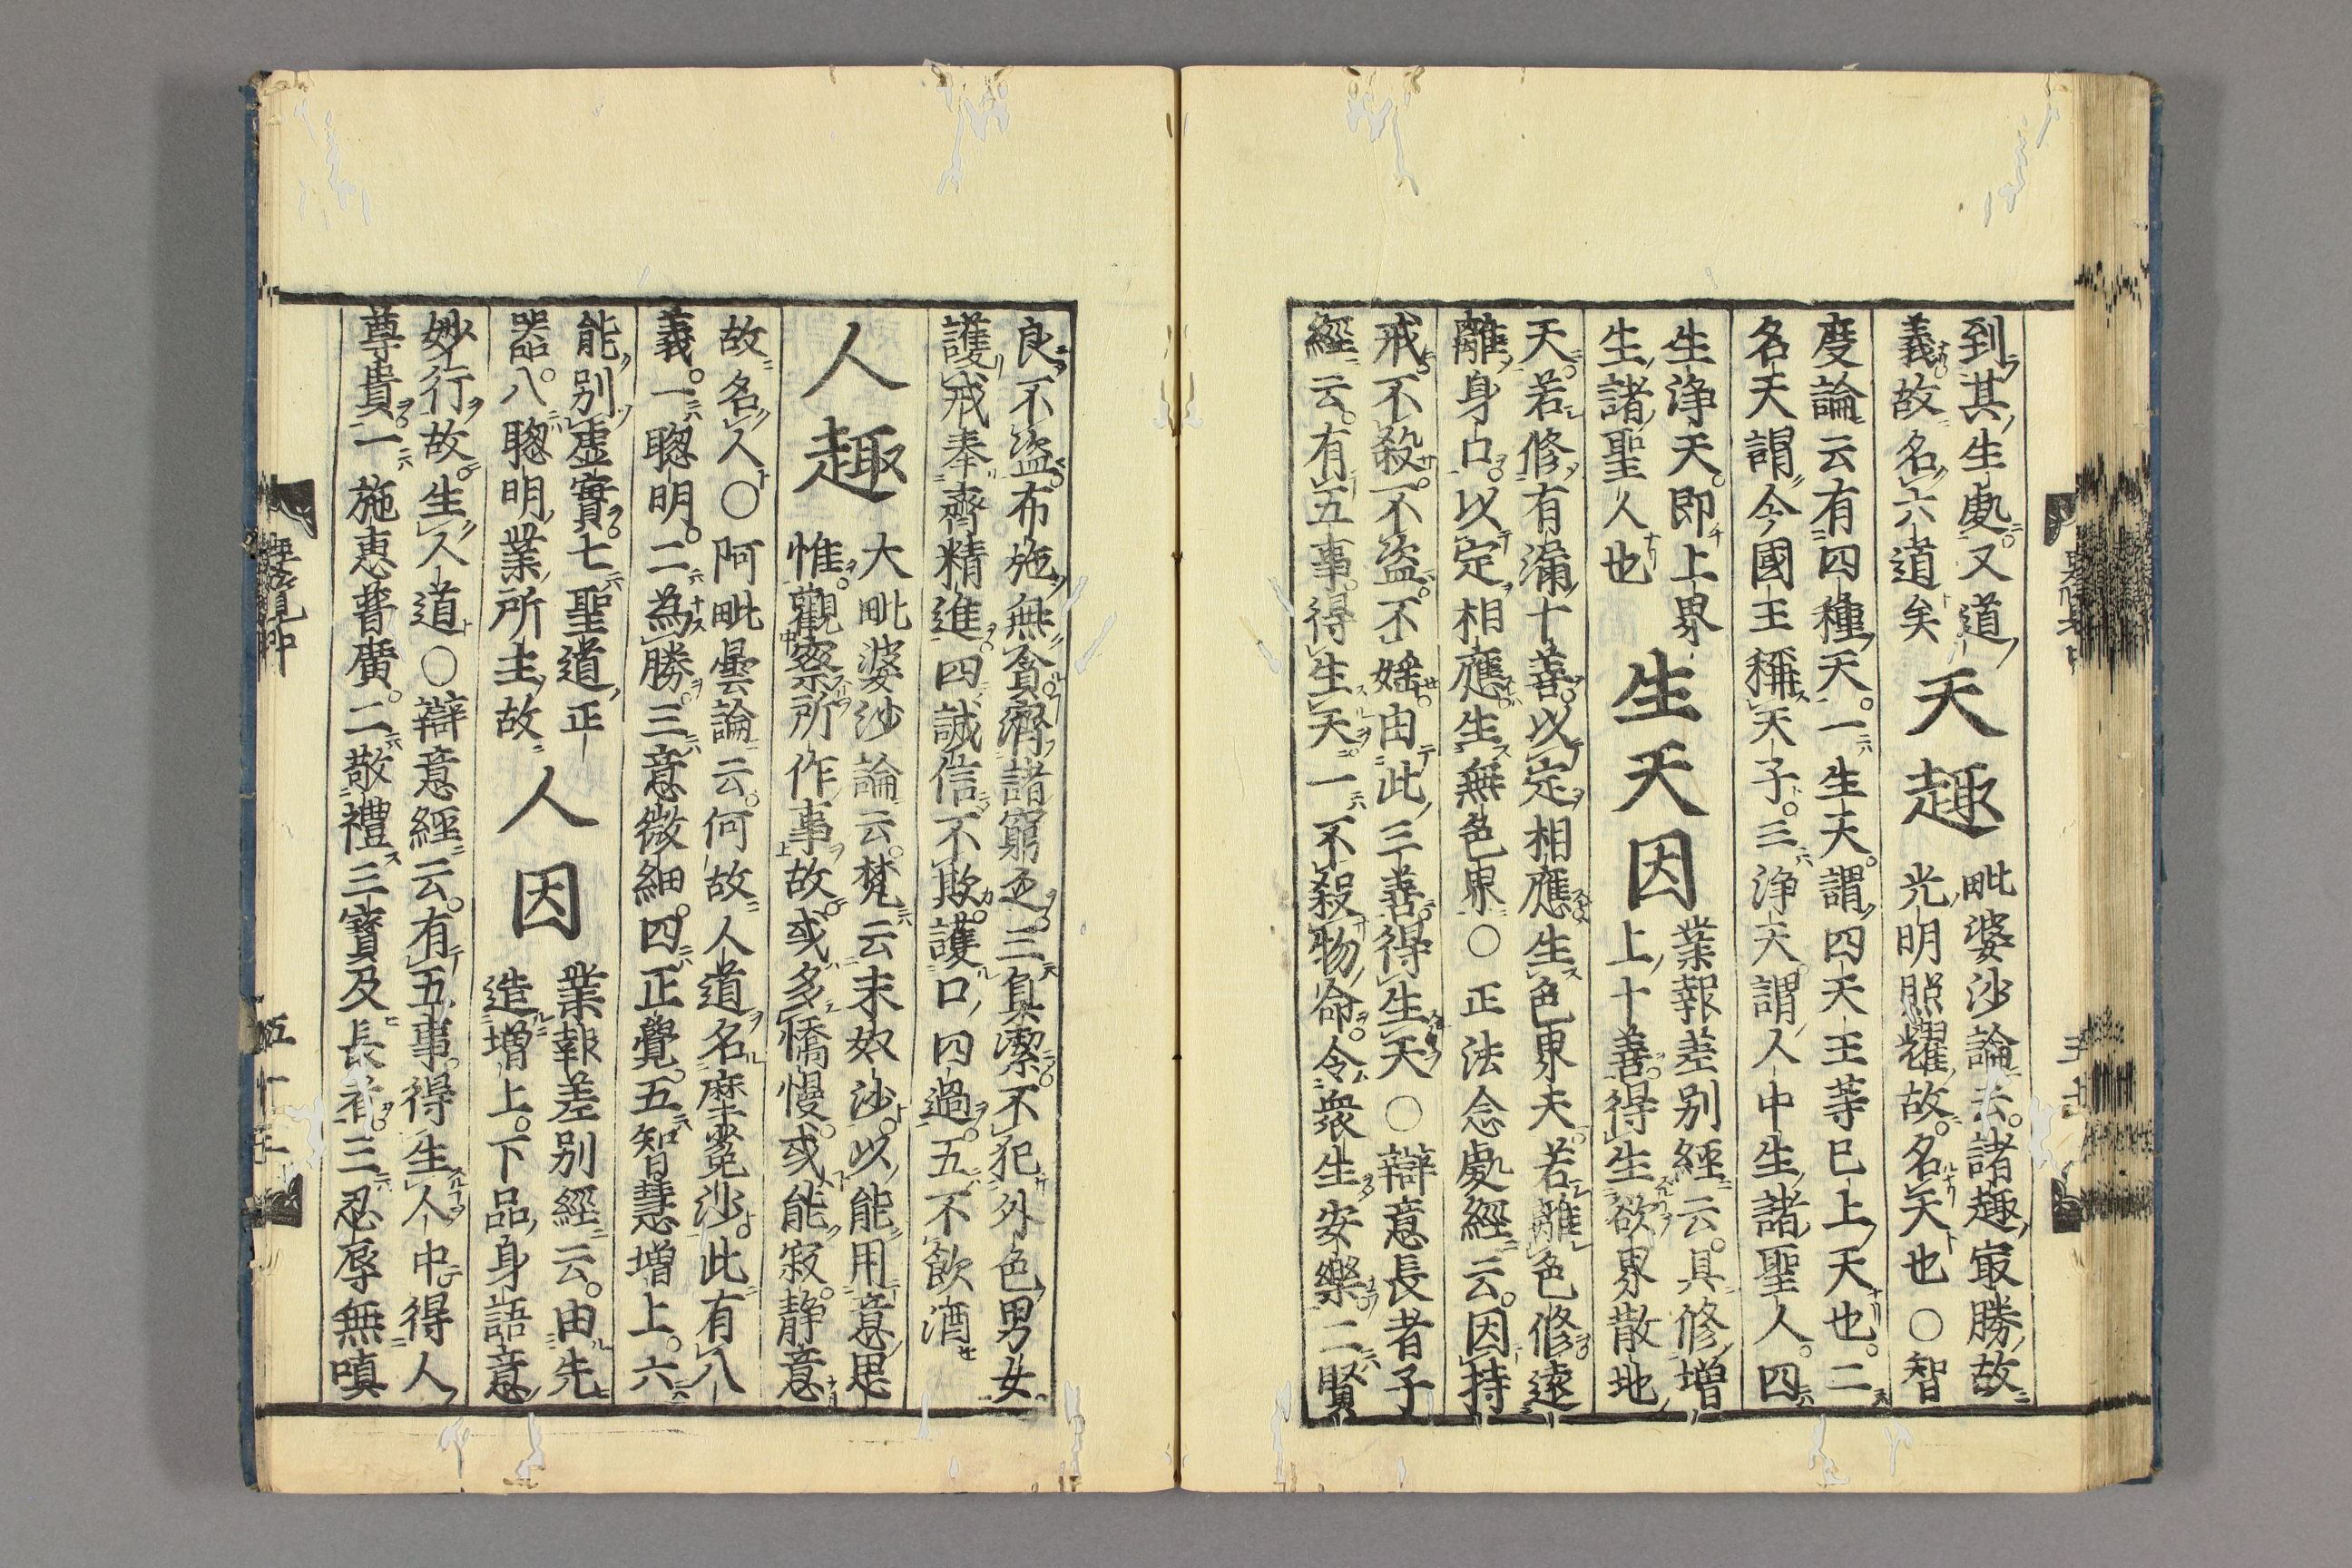 到其生處又道
義故名六道矣
天趣
毗婆沙論云諸趣㝡勝故
光明照耀故名天也○智
度論云有四種天一生天謂四天王等已上天也二
名天謂今國王稱天子三淨天謂人中生諸聖人四
生淨天即上界
生諸聖人也
生天因
業報差別經云具修增
上十善得生欲界散地
天若修有漏十善以定相應生色界天若離色修遠
離身口以定相應生無色界○正法念處經云因持
戒不殺不盜不婬由此三善得生天○辯意長者子
經云有五事得生天一不殺物命令衆生安樂二賢
良不盜布施無貪濟諸窮乏三貞潔不犯外色男女
護戒奉齊精進四誠信不欺護口四過五不飲酒
人趣
大毗婆沙論云梵云末奴沙以能用意思
惟觀察所作事故或多憍慢或能寂静意
故名人○阿毗曇論云何故人道名摩㝹沙此有八
義一聦明二為勝三意微細四正覺五智慧增上六
能別虛實七聖道正
器八聦明業所主故
人因
業報差別經云由先
造增上下品身語意
妙行故生人道○辯意經云有五事得生人中得人
尊貴一施惠普廣二敬禮三寶及長者三忍辱無嗔
五十二